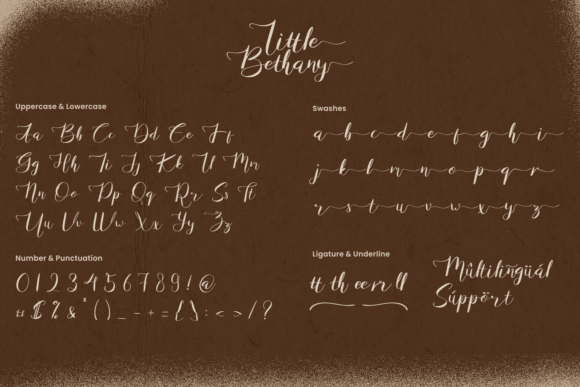 Little
Bethany
Uppercase & Lowercase
Aa Bb Cc Dd Ee Ff
Gg Hh Ii Jj Kk Ll Mm
Nn Oo Pp Qq Rr Ss Tt
Uu Vv Ww Xx Yy Zz
Number & Punctuation
0 1 2 3 4 5 6 7 8 9 ! @
# $ % & * ( ) _ - + = { } : < > / ?
Swashes
a b c d e f g h i
j k l m n o p q r
r s t u v w x y z
Ligature & Underline
tt th ee rr ll
Múltilíñgüál
Súppört